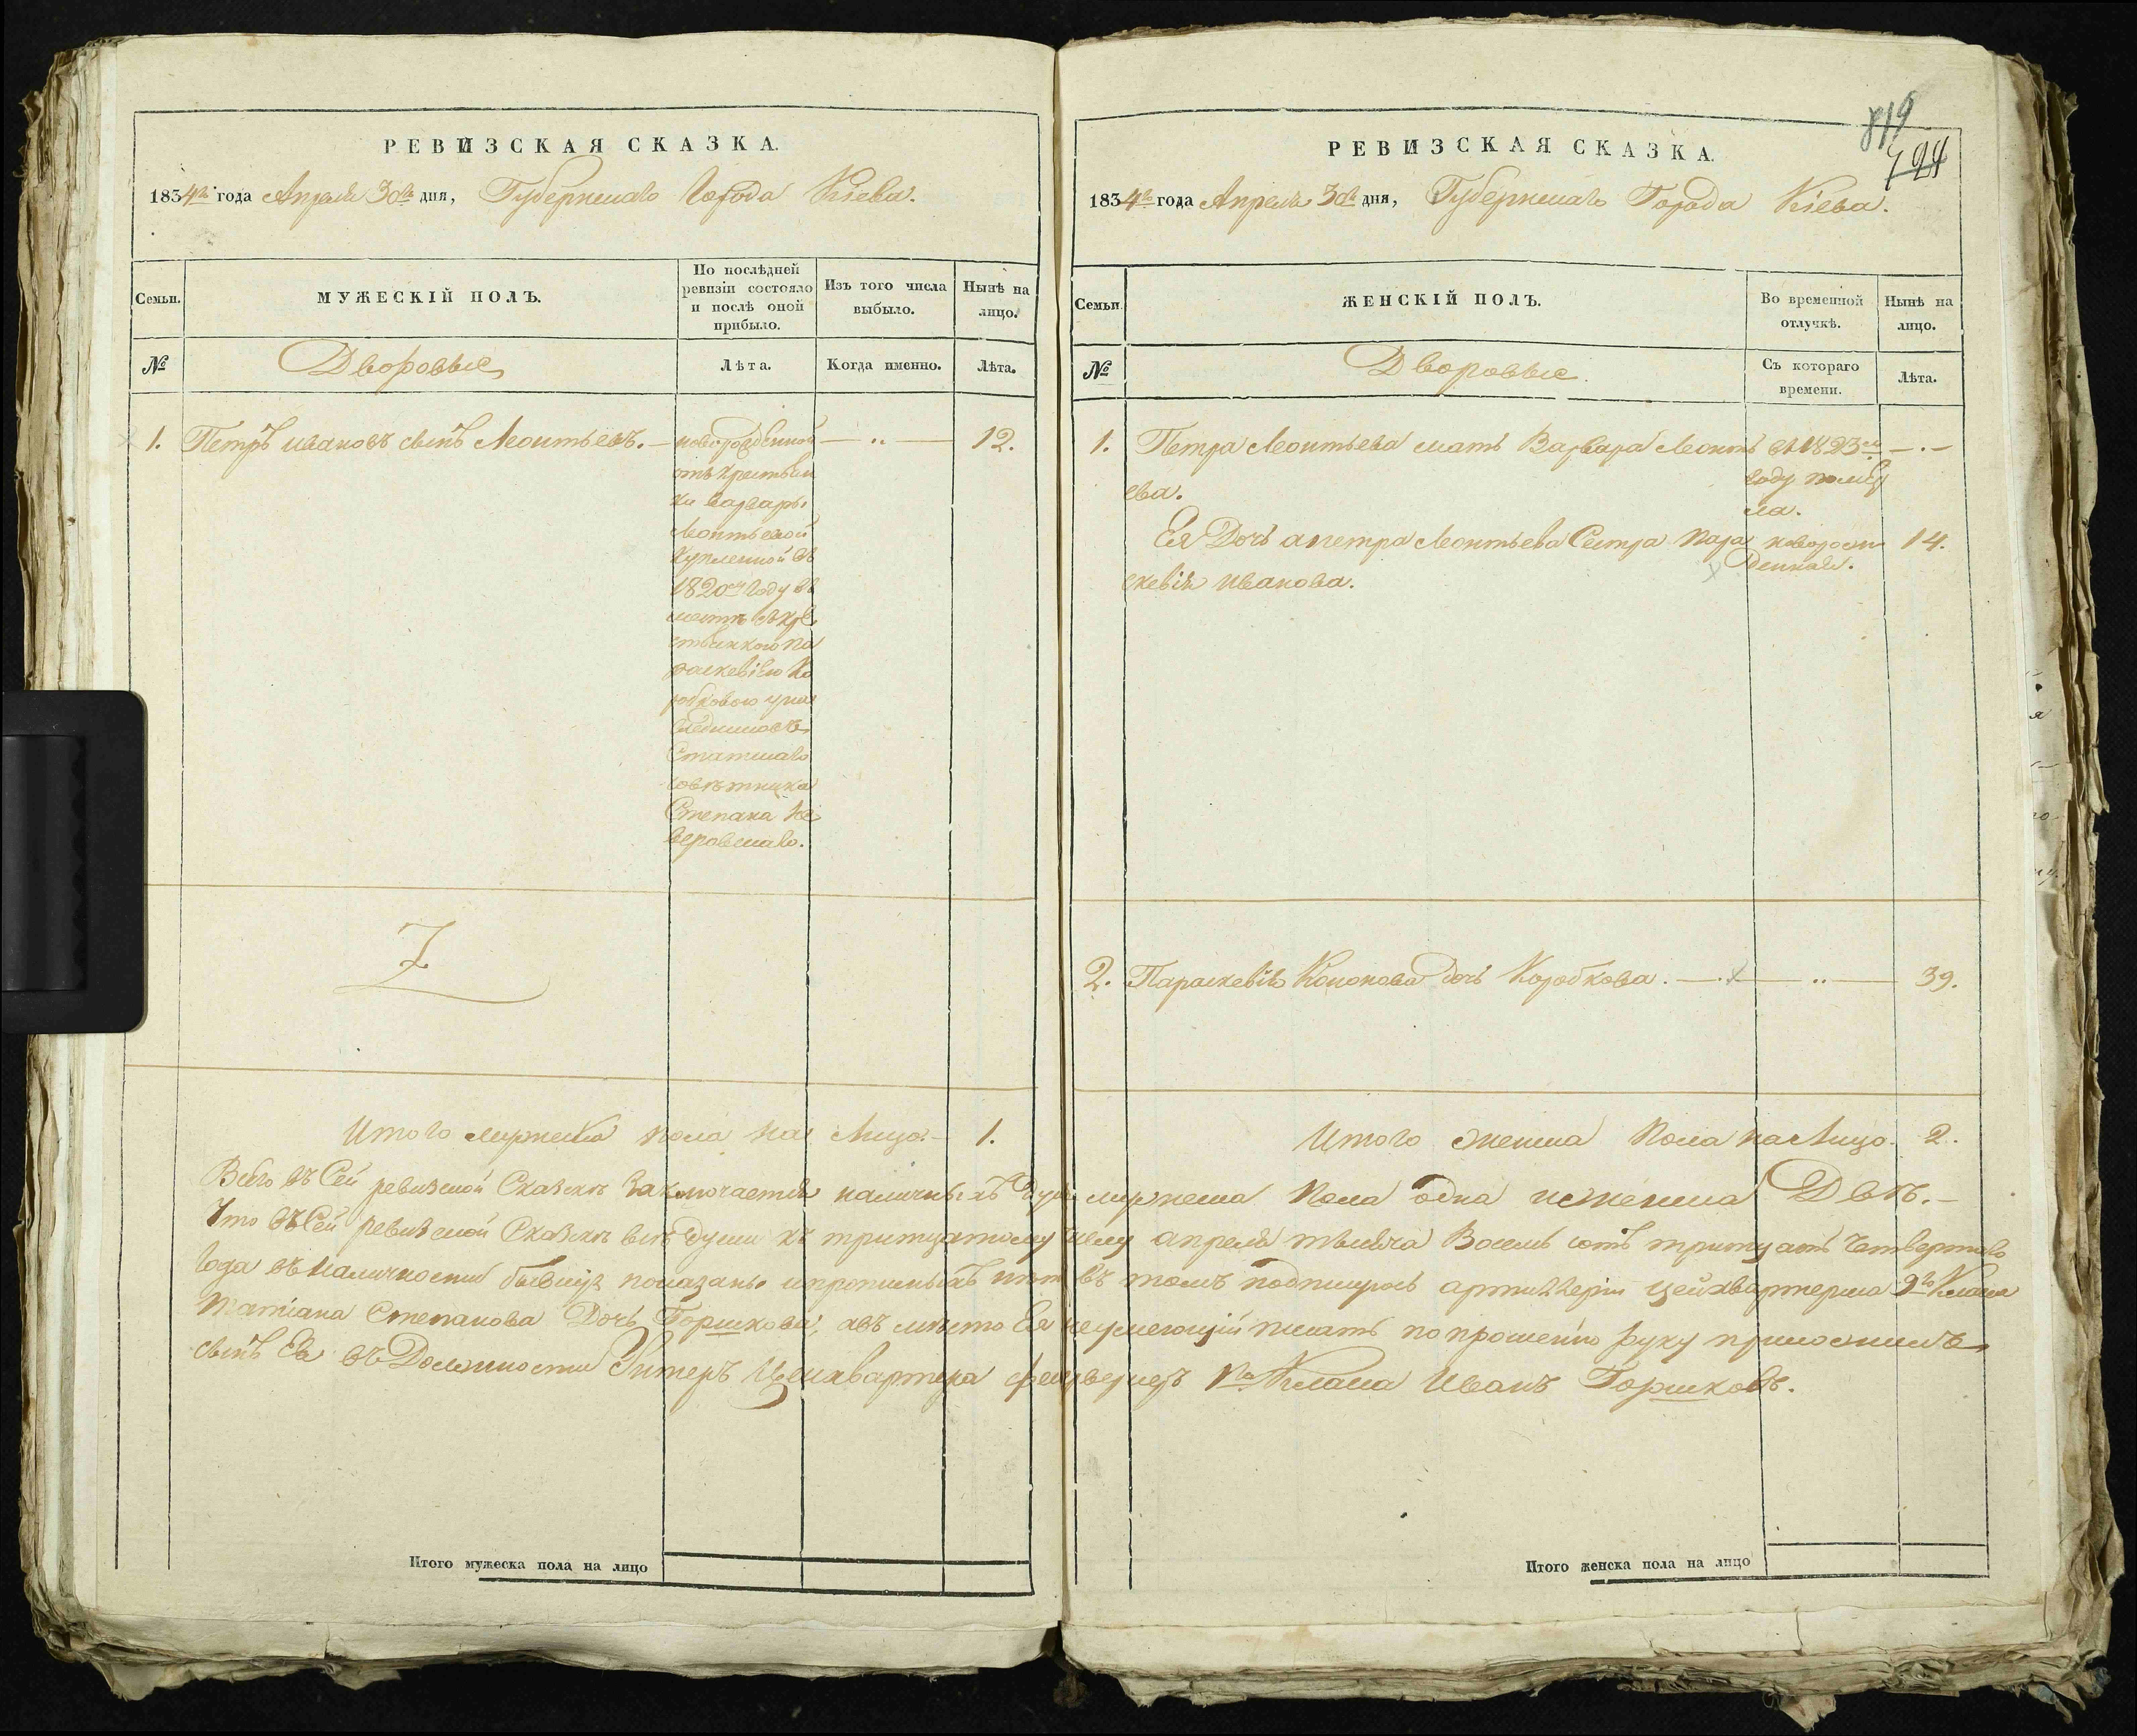 РЕВИЗСКАЯ СКАЗКА.
1834го года Апреля 30го дня, Губернскаго Города Кіева.
Семьи.
МУЖЕСКІЙ ПОЛЪ.
По послѣдней
ревизіи состояло
и послѣ оной
прибыло.
Изъ того числа
выбыло.
Нынѣ на
лицо.
№
Дворовые
Лѣта.
Когда именно.
Лѣта.
1. Петръ ивановъ сынъ Леонтьевъ. — новорожденной — „ — 12.
отъ крестьян
ки Варвары
Леонтьевой
купленной въ
1820м году в
местѣ съ кре
стьянкою Па
раскевіею Ко
робковою у
Статскаго
советника
Степана Не
веровскаго.
Итого мужеска пола на Лицо. — 1.
РЕВИЗСКАЯ СКАЗКА.
819
794
1834го года Апреля 30го дня, Губернскаго Города Кіева.
Семьи
ЖЕНСКІЙ ПОЛЪ.
Во временной
отлучкѣ.
Нынѣ на
лицо.
№
Дворовые.
Съ котораго
времени.
Лѣта.
1. Петра Леонтьева мать Варвара Леонть въ 1823м — „ —
ева.
году
ла.
Ея Дочь а петра Леонтьева Сестра Пара новорож 14.
скевія Иванова.
денная.
2. Параскевія Кононова дочь Коробкова. — „ — 39.
Итого женска Пола на Лицо. 2.
Всего въ Сей ревизской Сказкѣ Заключается наличныхъ душъ мужеска Пола одна и женска Двѣ. —
Что въ Сей ревизской Сказкѣ все души къ тритцатому числу апреля тысяча Восемь сотъ тритцать Четвертаго
Года въ наличности бывшия показаны и прописныхъ нѣтъ въ томъ подпишусь артиллеріи цейхвартерша 9го Класа
Татіана Степанова Дочь Горшкова, а въ место Ея неумеющій писать по прошенію руку приложилъ
сынъ Ея въ Должности Унтеръ Цейхвартера фейерверкеръ Класа Иванъ Горшковъ.
Итого мужеска пола на лицо
Итого женска пола на лицо